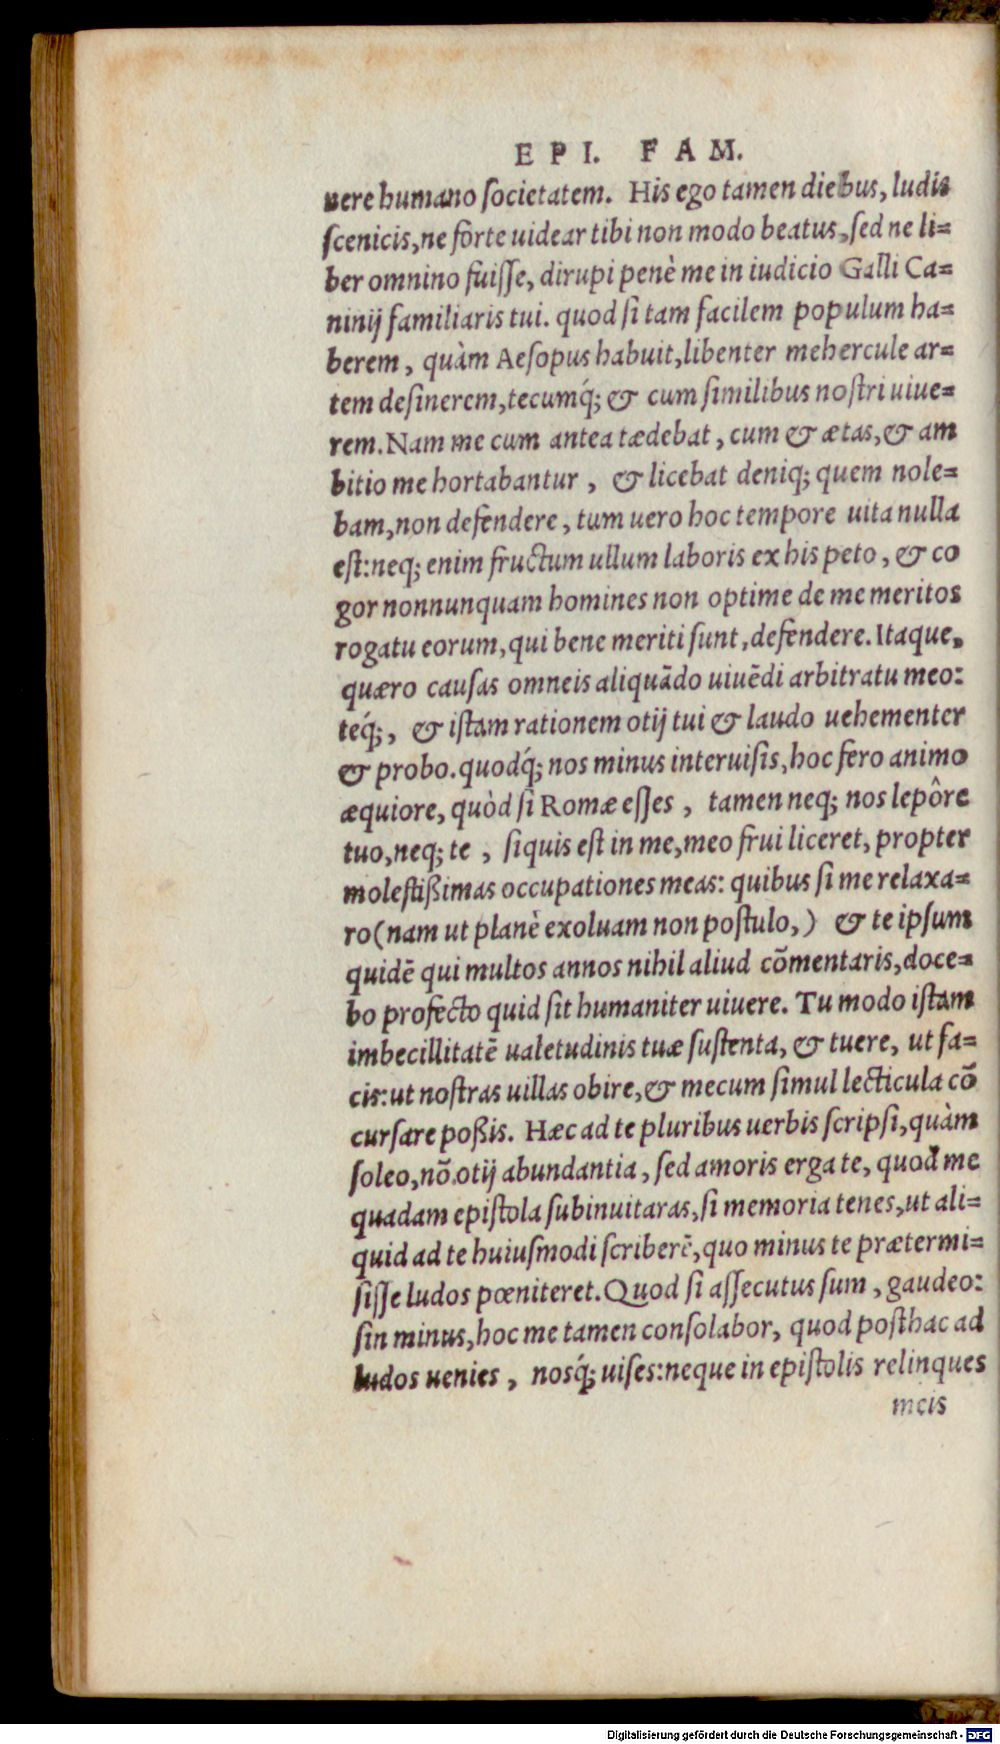 EPI. FAM.
nere humano ſocietatem. His ego tamen diebus, ludis
ſcenicis, ne forte uidear tibi non modo beatus, ſed ne li=
ber omnino fuiſſe, dirupi penè me in iudicio Galli Ca=
ninij familiaris tui. quod ſi tam facilem populum ha=
berem, quàm Aeſopus habuit, libenter mehercule ar=
tem deſinerem, tecumq́; & cum ſimilibus noſtri uiue=
rem. Nam me cum antea tædebat, cum & ætas, & am
bitio me hortabantur, & licebat deniq; quem nole=
bam, non defendere, tum uero hoc tempore uita nulla
eſt: neq; enim fructum ullum laboris ex his peto, & co
gor nonnunquam homines non optime de me meritos
rogatu eorum, qui bene meriti ſunt, defendere. Itaque,
quæro cauſas omneis aliquãdo uiuẽdi arbitratu meo:
teq́;, & iſtam rationem otij tui & laudo uehementer
& probo. quodq́; nos minus interuiſis, hoc fero animo
æquiore, quòd ſi Romæ eſſes, tamen neq; nos lepôre
tuo, neq; te, ſiquis eſt in me, meo frui liceret, propter
moleſtißimas occupationes meas: quibus ſi me relaxa=
ro (nam ut planè exoluam non poſtulo,) & te ipſum
quidẽ qui multos annos nihil aliud cõmentaris, doce=
bo profecto quid ſit humaniter uiuere. Tu modo iſtam
imbecillitatẽ ualetudinis tuæ ſuſtenta, & tuere, ut fa=
cis: ut noſtras uillas obire, & mecum ſimul lecticula cõ
curſare poßis. Hæc ad te pluribus uerbis ſcripſi, quàm
ſoleo, nõ otij abundantia, ſed amoris erga te, quod me
quadam epiſtola ſubinuitaras, ſi memoria tenes, ut ali=
quid ad te huiuſmodi ſcriberẽ, quo minus te prætermi=
ſiſſe ludos pœniteret. Quod ſi aſſecutus ſum, gaudeo:
ſin minus, hoc me tamen conſolabor, quod poſthac ad
ludos uenies, nosq́; uiſes: neque in epiſtolis relinques
meis
Digitalisierung gefördert durch die Deutsche Forschungsgemeinschaft - DFG